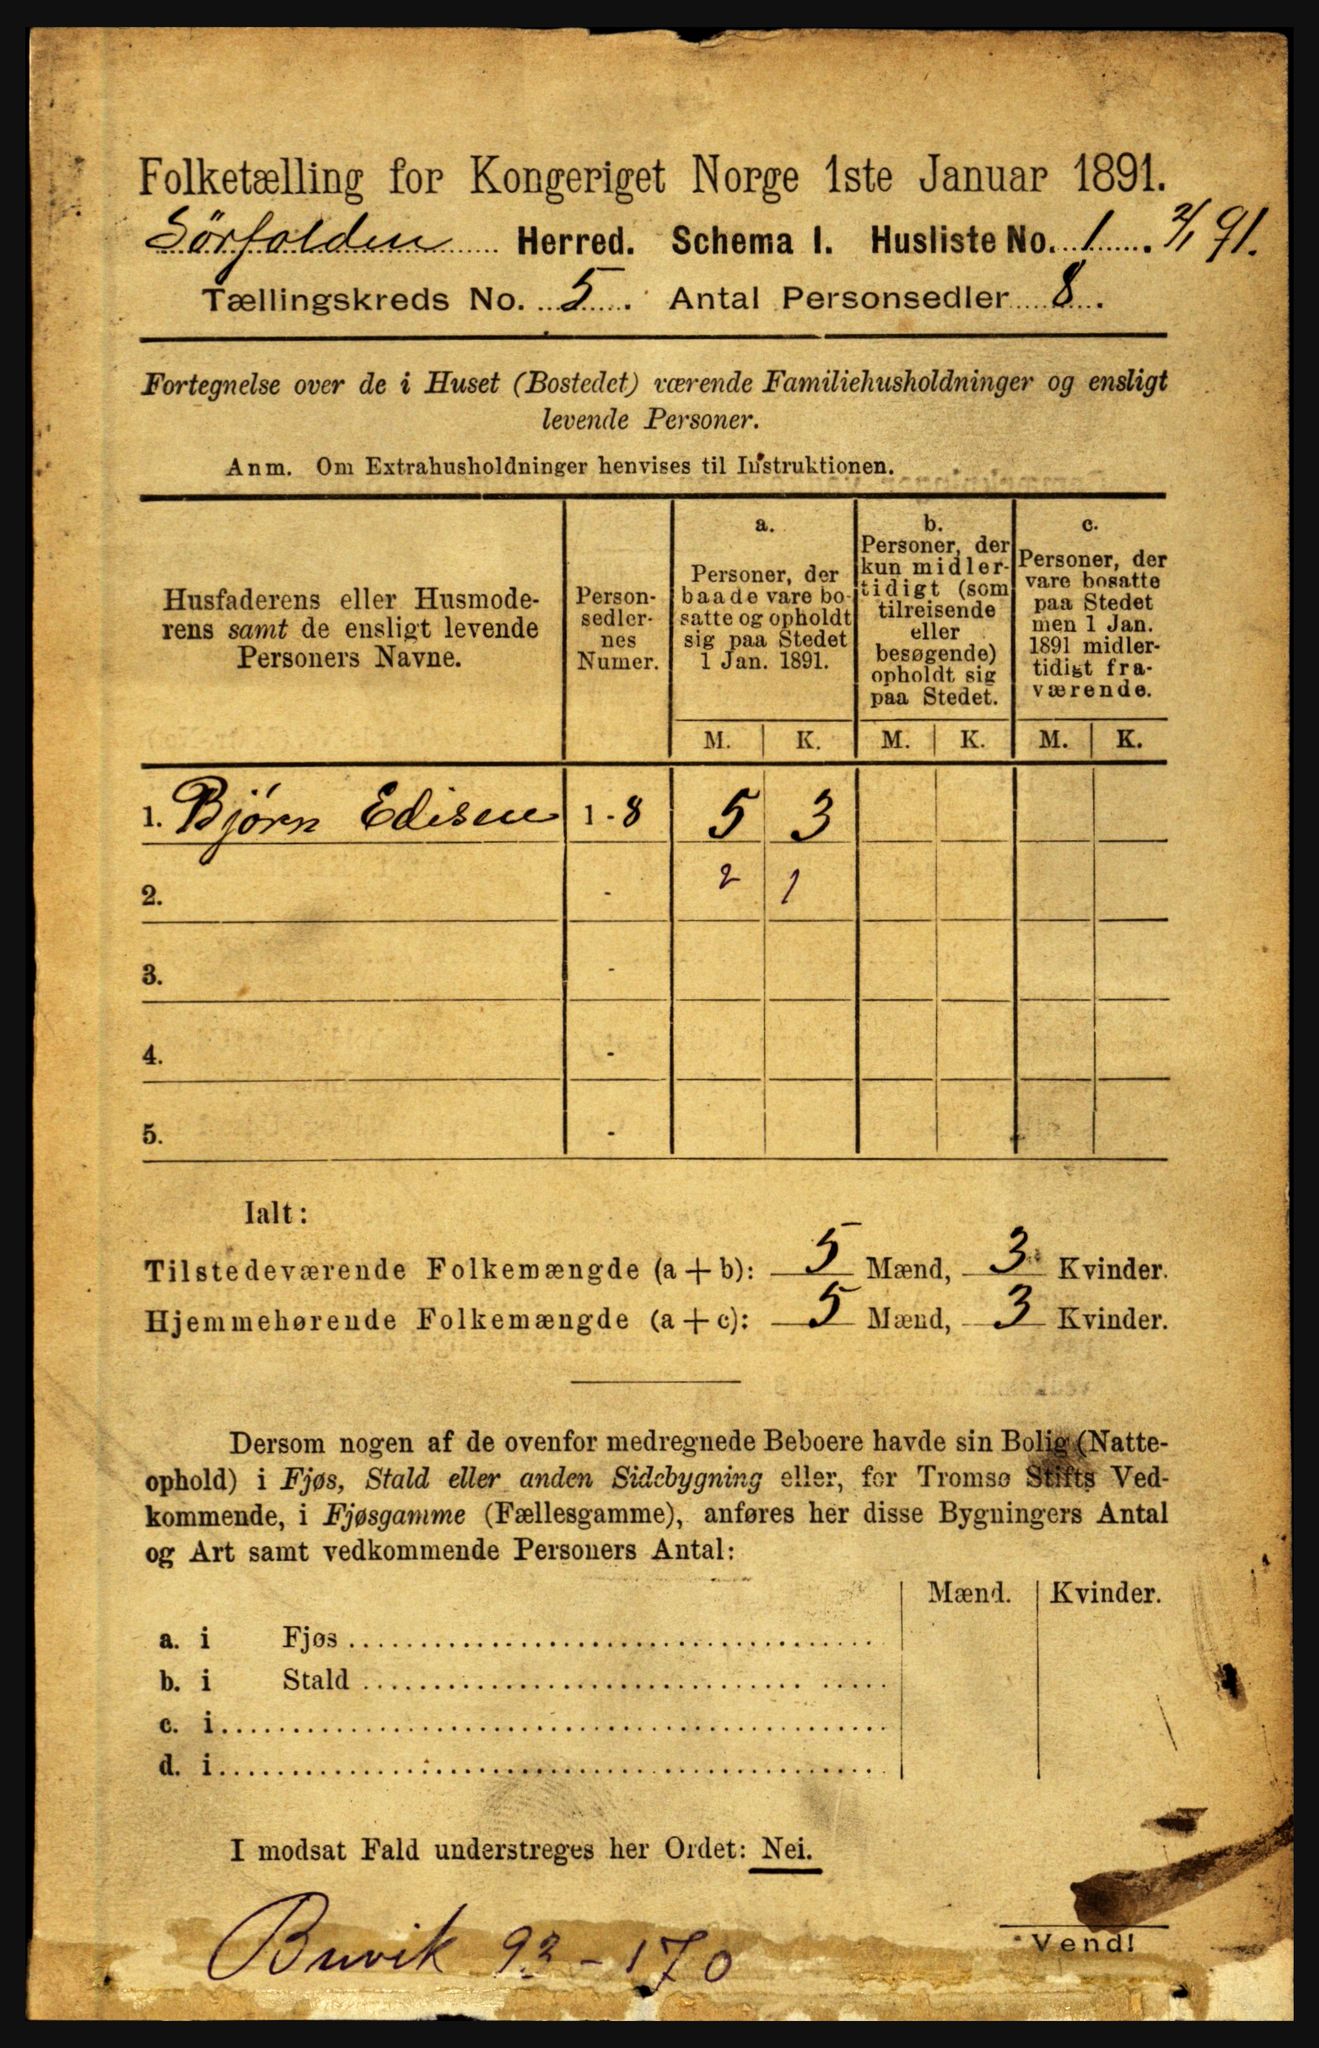 Folketælling for Kongeriget Norge 1ste Januar 1891.
Sörfolden Herred. Schema I. Husliste No. 1. 2/1 91.
Tællingskreds No. 5. Antal Personsedler 8.
Fortegnelse over de i Huset (Bostedet) værende Familiehusholdninger og ensligt
levende Personer.
Anm. Om Extrahusholdninger henvises til Instruktionen.
Husfaderens eller Husmode-
rens samt de ensligt levende
Personers Navne.
Person-
sedler-
nes
Numer.
a.
Personer, der
baade vare bo-
satte og opholdt
sig paa Stedet
1 Jan. 1891.
b.
Personer, der
kun midler-
tidigt (som
tilreisende
eller
besøgende)
opholdt sig
paa Stedet.
c.
Personer, der
vare bosatte
paa Stedet
men 1 Jan.
1891 midler-
tidigt fra-
værende.
M. K. M. K. M. K.
1. Bjørn Edisen 1 - 8 5 3
2. - 2 1
3. -
4. -
5. -
Ialt:
Tilstedeværende Folkemængde (a + b): 5 Mænd, 3 Kvinder.
Hjemmehørende Folkemængde (a + c): 5 Mænd, 3 Kvinder.
Dersom nogen af de ovenfor medregnede Beboere havde sin Bolig (Natte-
ophold) i Fjøs, Stald eller anden Sidebygning eller, for Tromsø Stifts Ved-
kommende, i Fjøsgamme (Fællesgamme), anføres her disse Bygningers Antal
og Art samt vedkommende Personers Antal:
Mænd. Kvinder.
a. i Fjøs
b. i Stald
c. i
d. i
I modsat Fald understreges her Ordet: Nei.
Buvik 93 - 170
Vend!